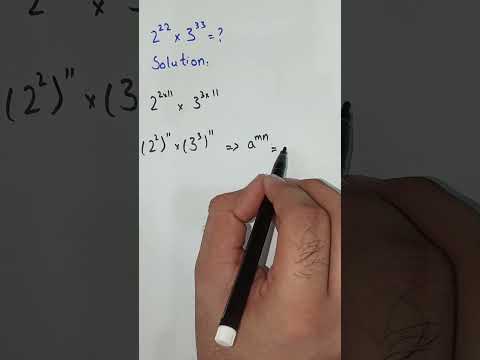 2²² × 3³³ = ?
Solution:
2²ˣ¹¹ × 3³ˣ¹¹
(2²)¹¹ × (3³)¹¹ ⇒ aᵐⁿ =